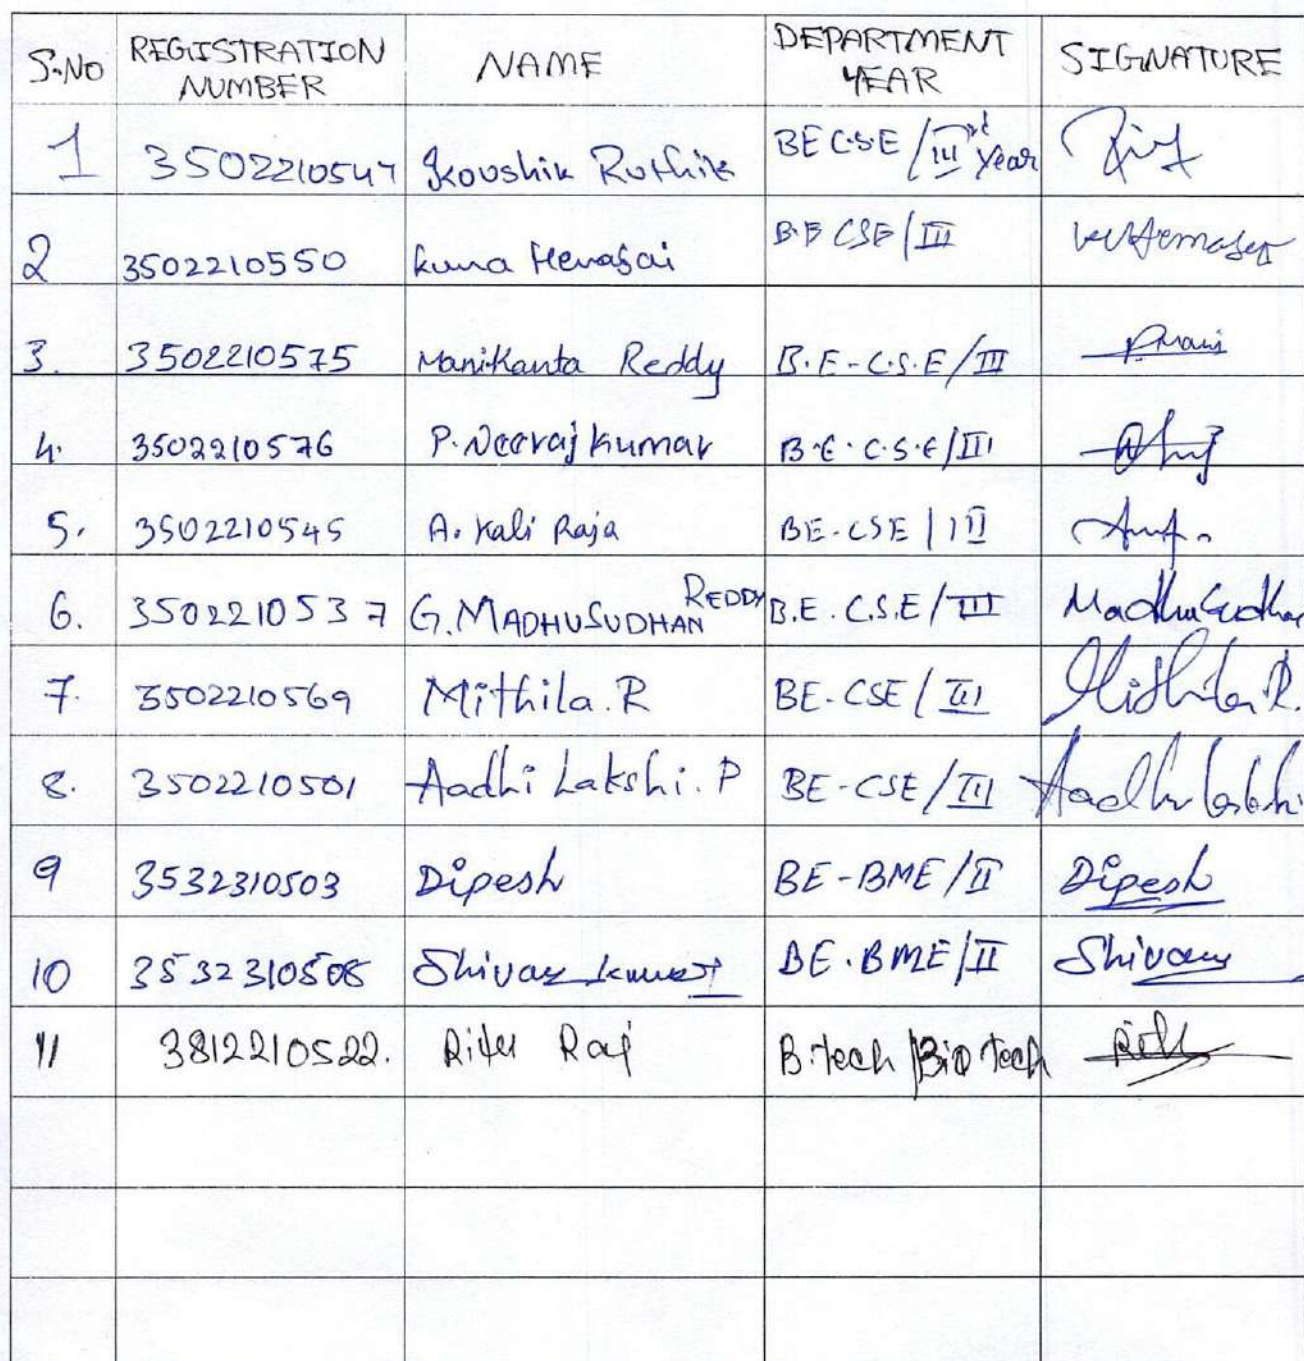 S.No REGISTRATION NUMBER NAME DEPARTMENT YEAR SIGNATURE
1 3502210547 Koushik Ruthik BE C.S.E / IIIrd Year
2 3502210550 kuna Hemasai B.E CSE / III
3. 3502210575 Manikanta Reddy B.E - C.S.E / III P.Mani
4. 3502210576 P. Neeraj kumar B.E. C.S.E / III
5. 3502210545 A. Kali Raja BE - CSE / III
6. 3502210537 G. MADHUSUDHAN REDDY B.E. C.S.E / III Madhu Sudhan
7. 3502210569 Mithila. R BE - CSE / III Mithila R.
8. 3502210501 Aadhi Lakshi. P BE - CSE / III Aadhi Lakshi
9 3532310503 Dipesh BE - BME / II Dipesh
10 3532310508 Shivam kumar BE. BME / II Shivam
11 3812210522. Ritu Raj B.Tech / Bio Tech Ritu